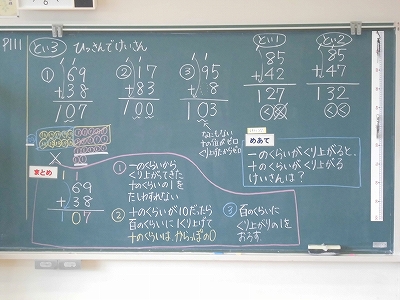 P111
とい3 ひっさんでけいさん
① 69
+38
107
② 17
+83
100
③ 95
+8
103
とい1
85
+42
127
く
とい2
85
+47
132
くく
めあて
一のくらいがくり上がると、
十のくらいがくり上がる
けいさんは？
まとめ
69
+38
07
① 一のくらいから
くり上がってきた
十のくらいの1を
たしわすれない
② 十のくらいが10だったら
百のくらいに1くり上げて
十のくらいは、からっぽの0
③ 百のくらいに
くり上がりの1を
おろす